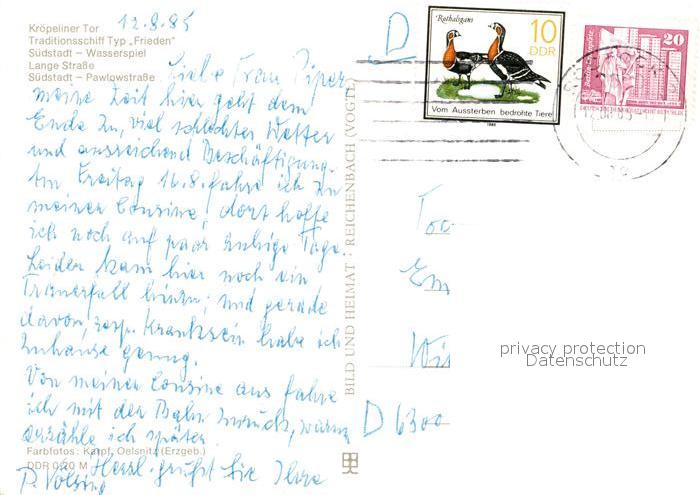 12.8.85
Kröpeliner Tor
Traditionsschiff Typ „Frieden"
Südstadt – Wasserspiel
Lange Straße
Südstadt – Pawlowstraße
Liebe Frau Piper
meine Zeit hier geht dem
Ende zu, viel schlechter Wetter
und ausreichend Beschäftigung.
Am Freitag 16.8. fahre ich zu
meiner Cousine, dort hoffe
ich noch auf paar ruhige Tage.
Leider kam hier noch ein
Trauerfall hinzu; und gerade
davon, resp. Kranksein habe ich
zuhause genug.
Von meiner Cousine aus fahre
ich mit der Bahn zurück, warum
erzähle ich später.
Herzl. grüßt Sie Ihre
P. Völsing
Farbfotos: Karpf, Oelsnitz (Erzgeb.)
DDR 0,20 M
BILD UND HEIMAT · REICHENBACH (VOGTL)
D
Rothalsgans
10
DDR
Vom Aussterben bedrohte Tiere
1985
20
Em
D 6300
privacy protection
Datenschutz